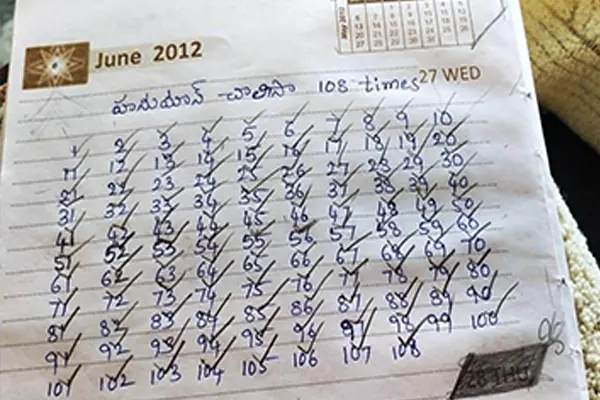 May 2012
June 2012
27 WED
ஹனுமான் சாலிஸா 108 times
1 2 3 4 5 6 7 8 9 10
11 12 13 14 15 16 17 18 19 20
21 22 23 24 25 26 27 28 29 30
31 32 33 34 35 36 37 38 39 40
41 42 43 44 45 46 47 48 49 50
51 52 53 54 55 56 57 58 59 60
61 62 63 64 65 66 67 68 69 70
71 72 73 74 75 76 77 78 79 80
81 82 83 84 85 86 87 88 89 90
91 92 93 94 95 96 97 98 99 100
101 102 103 104 105 106 107 108
28 THU